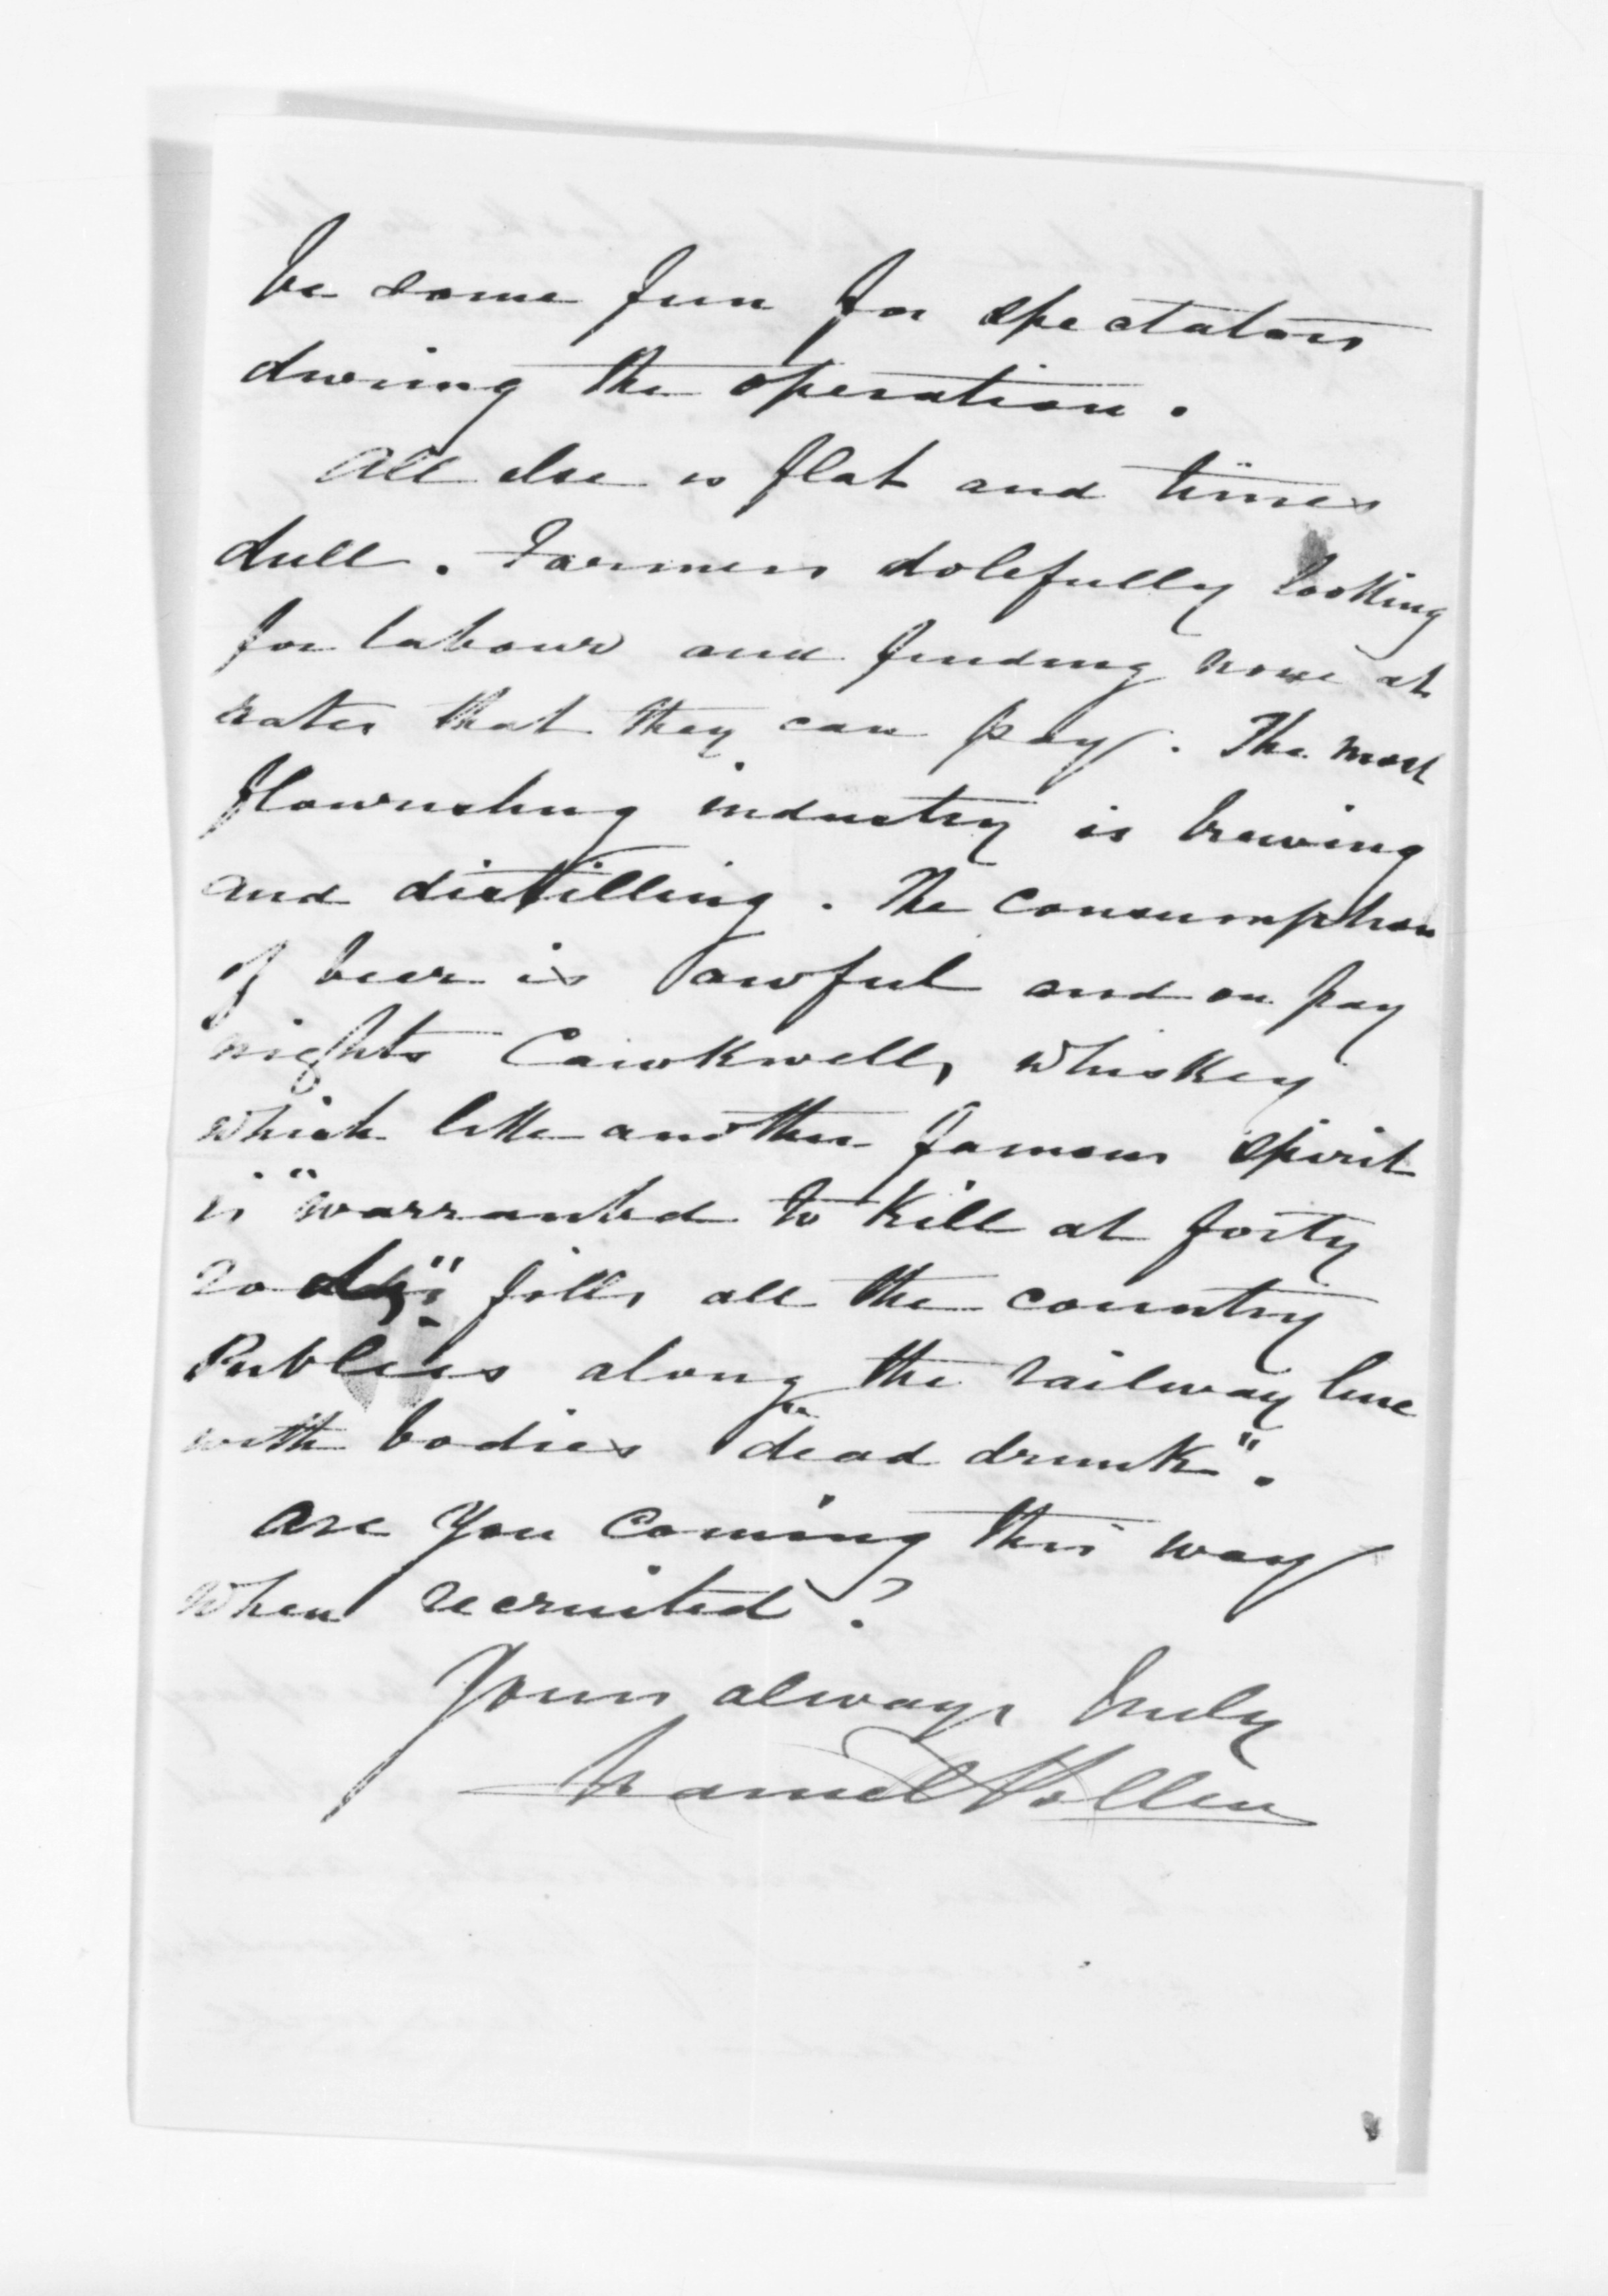 be some fun for spectators
during the operation.
All else is flat and times
dull. Farmers dolefully looking
for labour and finding none at
rates that they can pay. The most
flourishing industry is brewing
and distilling. The consumption
of beer is awful and on pay
nights Cawkwells whiskey
which like another famous spirit
is "warranted to kill at forty
rods" fills all the country
Publics along the railway line
with bodies "dead drunk".
Are you coming this way
when recruited?
Yours always truly
Daniel Pollen